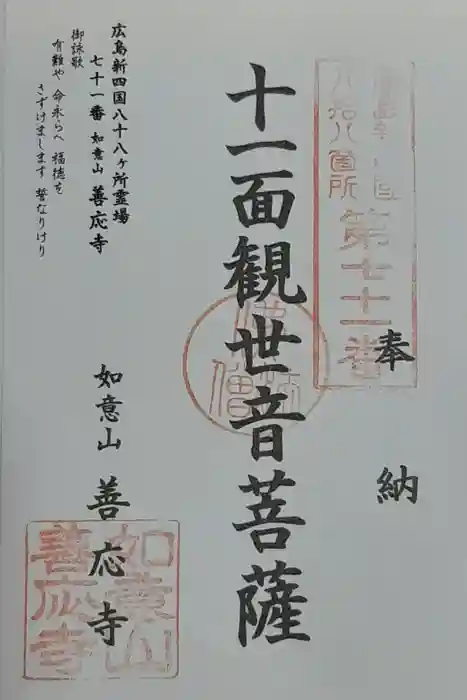 奉納
第七十一番
十一面観世音菩薩
広島新四国八十八ヶ所霊場
七十一番 如意山 善応寺
御詠歌
有難や 命永らへ 福徳を
さずけまします 誓なりけり
如意山 善応寺
如意山
善応寺